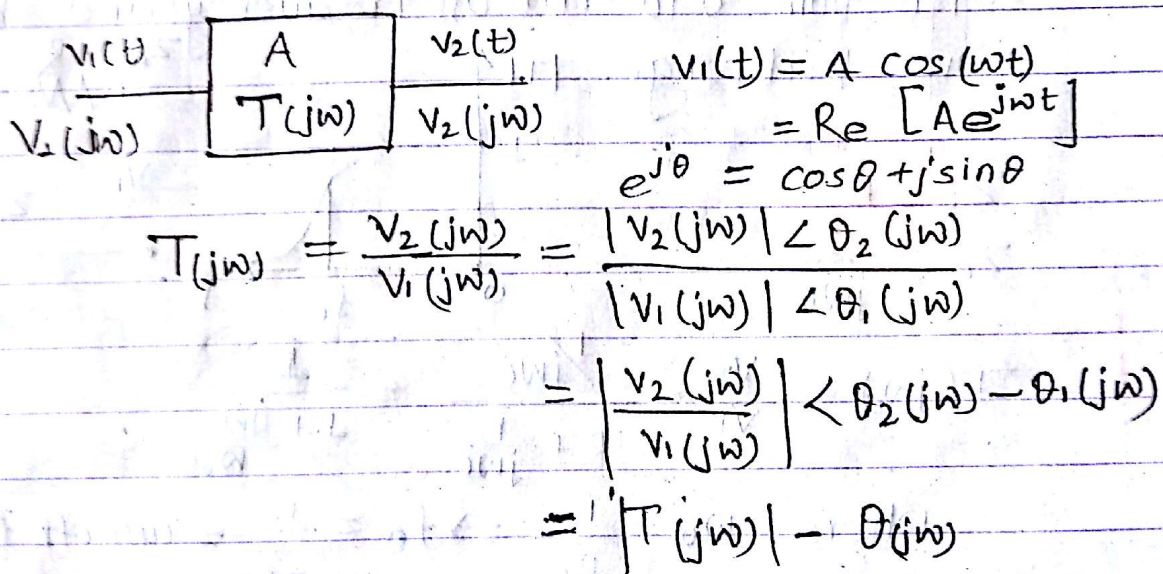 V₁(t) A V₂(t) V₁(t) = A cos(ωt)
V₁(jω) T(jω) V₂(jω) = Re [Ae^{jωt}]
e^{jθ} = cosθ + jsinθ
T(jω) = V₂(jω) / V₁(jω) = |V₂(jω)| ∠θ₂(jω) / |V₁(jω)| ∠θ₁(jω)
= |V₂(jω) / V₁(jω)| < θ₂(jω) – θ₁(jω)
= |T(jω)| – θ(jω)